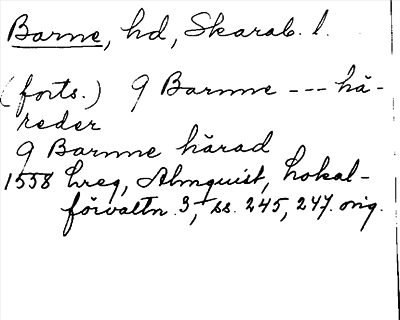 Barne, hd, Skarab. l.
(forts.) 9 Barnne --- hä-
reder
9 Barnne härad
1558 hreg, Almquist, Lokal-
förvaltn. 3, ss. 245, 247. orig.